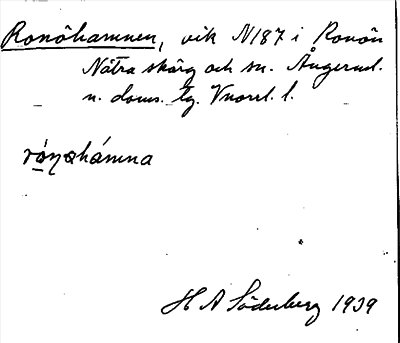 Ronöhamnen, vik N187 i Ronön
Nätra skärg och sn. Ångerml.
n. doms. tg. Vnorrl. l.
rónǝhámna
H A Söderberg 1939